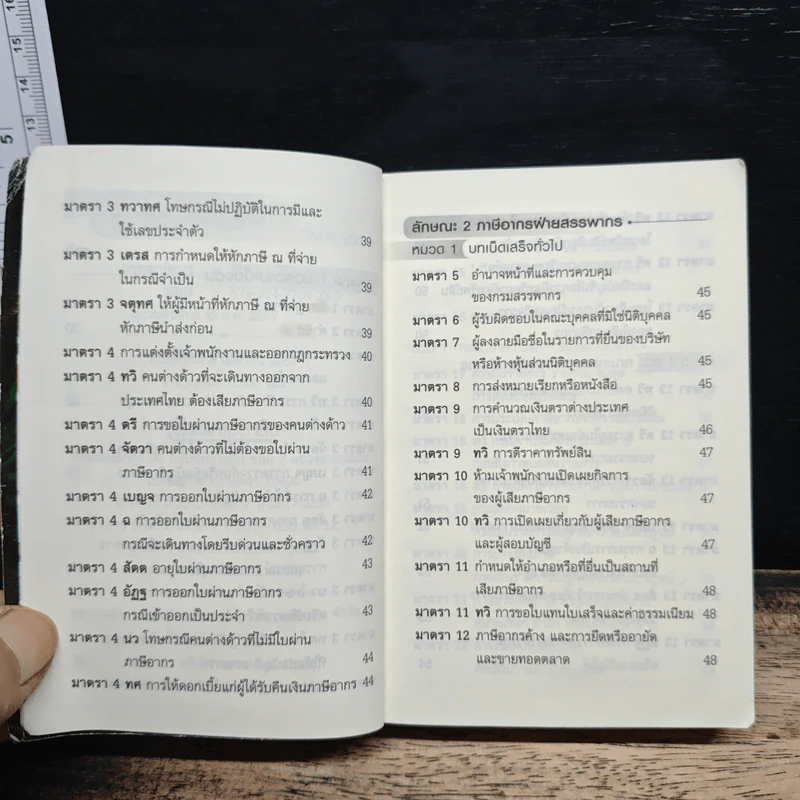 มาตรา 3 ทวาทศ โทษกรณีไม่ปฏิบัติในการมีและ
ใช้เลขประจำตัว 39
มาตรา 3 เตรส การกำหนดให้หักภาษี ณ ที่จ่าย
ในกรณีจำเป็น 39
มาตรา 3 จตุทศ ให้ผู้มีหน้าที่หักภาษี ณ ที่จ่าย
หักภาษีนำส่งก่อน 39
มาตรา 4 การแต่งตั้งเจ้าพนักงานและออกกฎกระทรวง 40
มาตรา 4 ทวิ คนต่างด้าวที่จะเดินทางออกจาก
ประเทศไทย ต้องเสียภาษีอากร 40
มาตรา 4 ตรี การขอใบผ่านภาษีอากรของคนต่างด้าว 41
มาตรา 4 จัตวา คนต่างด้าวที่ไม่ต้องขอใบผ่าน
ภาษีอากร 41
มาตรา 4 เบญจ การออกใบผ่านภาษีอากร 42
มาตรา 4 ฉ การออกใบผ่านภาษีอากร
กรณีจะเดินทางโดยรีบด่วนและชั่วคราว 42
มาตรา 4 สัตต อายุใบผ่านภาษีอากร 43
มาตรา 4 อัฏฐ การออกใบผ่านภาษีอากร
กรณีเข้าออกเป็นประจำ 43
มาตรา 4 นว โทษกรณีคนต่างด้าวที่ไม่มีใบผ่าน
ภาษีอากร 44
มาตรา 4 ทศ การให้ดอกเบี้ยแก่ผู้ได้รับคืนเงินภาษีอากร 44
ลักษณะ 2 ภาษีอากรฝ่ายสรรพากร
หมวด 1 บทเบ็ดเสร็จทั่วไป
มาตรา 5 อำนาจหน้าที่และการควบคุม
ของกรมสรรพากร 45
มาตรา 6 ผู้รับผิดชอบในคณะบุคคลที่มิใช่นิติบุคคล 45
มาตรา 7 ผู้ลงลายมือชื่อในรายการที่ยื่นของบริษัท
หรือห้างหุ้นส่วนนิติบุคคล 45
มาตรา 8 การส่งหมายเรียกหรือหนังสือ 45
มาตรา 9 การคำนวณเงินตราต่างประเทศ
เป็นเงินตราไทย 46
มาตรา 9 ทวิ การตีราคาทรัพย์สิน 47
มาตรา 10 ห้ามเจ้าพนักงานเปิดเผยกิจการ
ของผู้เสียภาษีอากร 47
มาตรา 10 ทวิ การเปิดเผยเกี่ยวกับผู้เสียภาษีอากร
และผู้สอบบัญชี 47
มาตรา 11 กำหนดให้อำเภอหรือที่อื่นเป็นสถานที่
เสียภาษีอากร 48
มาตรา 11 ทวิ การขอใบแทนใบเสร็จและค่าธรรมเนียม 48
มาตรา 12 ภาษีอากรค้าง และการยึดหรืออายัด
และขายทอดตลาด 48
13
14
15
16
5